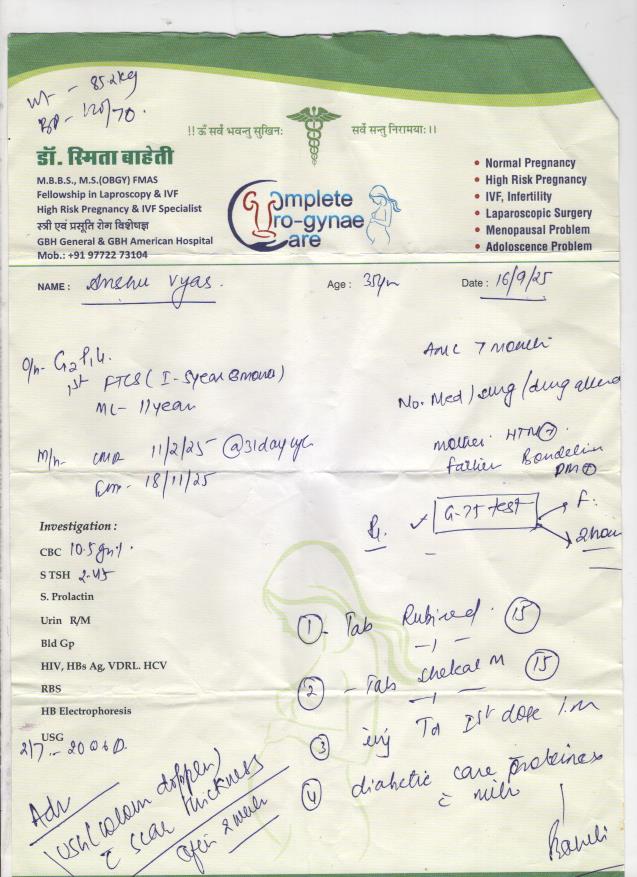 Wt - 85.2kg
BP - 120/70.
!! ॐ सर्वे भवन्तु सुखिनः सर्वे सन्तु निरामयः।।
डॉ. स्मिता बाहेती
M.B.B.S., M.S.(OBGY) FMAS
Fellowship in Laproscopy & IVF
High Risk Pregnancy & IVF Specialist
स्त्री एवं प्रसूति रोग विशेषज्ञ
GBH General & GBH American Hospital
Mob.: +91 97722 73104
Complete
Uro-gynae
Care
• Normal Pregnancy
• High Risk Pregnancy
• IVF, Infertility
• Laparoscopic Surgery
• Menopausal Problem
• Adoloscence Problem
NAME : Anshu Vyas. Age : 35yr Date : 16/9/25
O/h- G2P1L1.
1st FTCS ( I - 5year 8month)
ML- 11year
AMC 7 month
No. Med / surg / drug
mother HTN
father DM
M/h- LMP 11/2/25 @31day
EDD- 18/11/25
Rx ✓ G-75 test F:
2hour
Investigation :
CBC 10.5
S TSH 2.45
S. Prolactin
Urin R/M
Bld Gp
HIV, HBs Ag, VDRL. HCV
RBS
HB Electrophoresis
USG
2/7 - 20
① - Tab 15
② - Tab Shelcal M 15
③ inj Td Ist dose I.M
④ diabetic care
c milk
Adv
USG (colour doppler)
c scar thickness
after 2 week